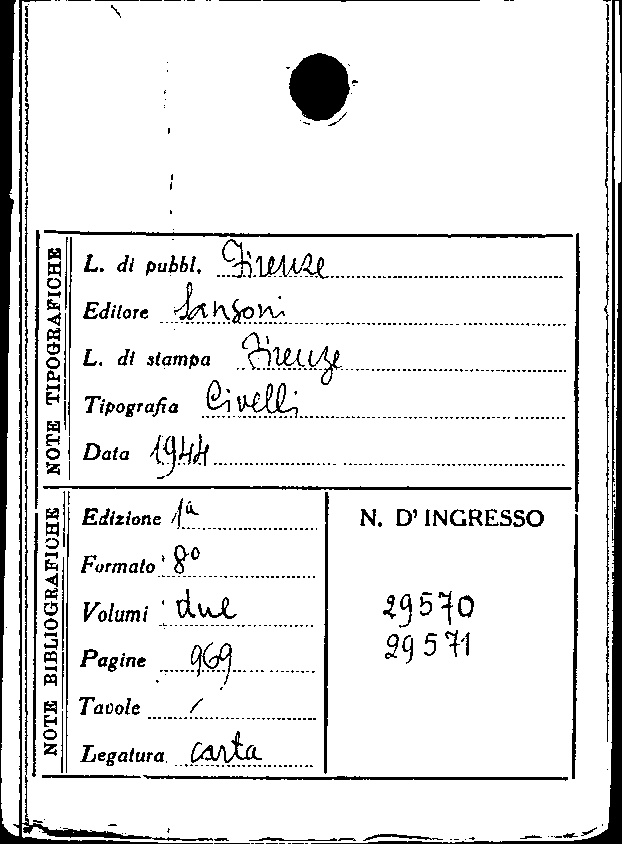 NOTE TIPOGRAFICHE
L. di pubbl. Firenze
Editore Sansoni
L. di stampa Firenze
Tipografia Civelli
Data 1944
NOTE BIBLIOGRAFICHE
Edizione 1ª
Formato 8º
Volumi due
Pagine 969
Tavole /
Legatura carta
N. D'INGRESSO
29570
29571